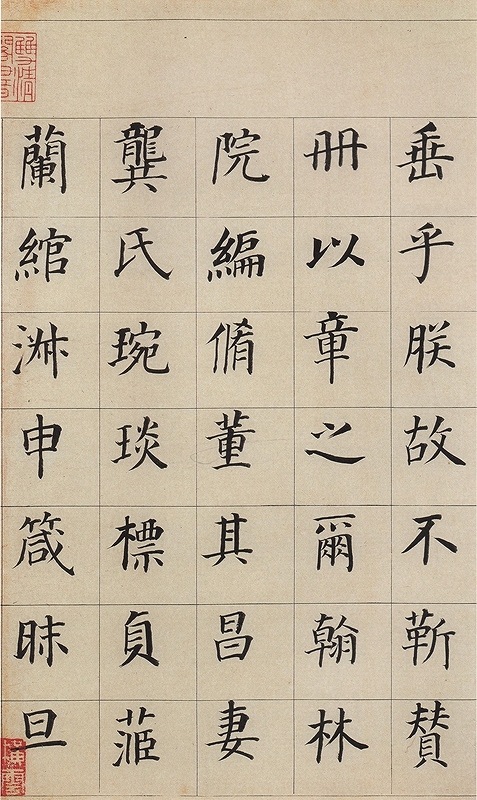 垂乎朕故不靳賛
冊以章之爾翰林
院編脩董其昌妻
龔氏琬琰標貞茝
蘭綰淑申箴昧旦